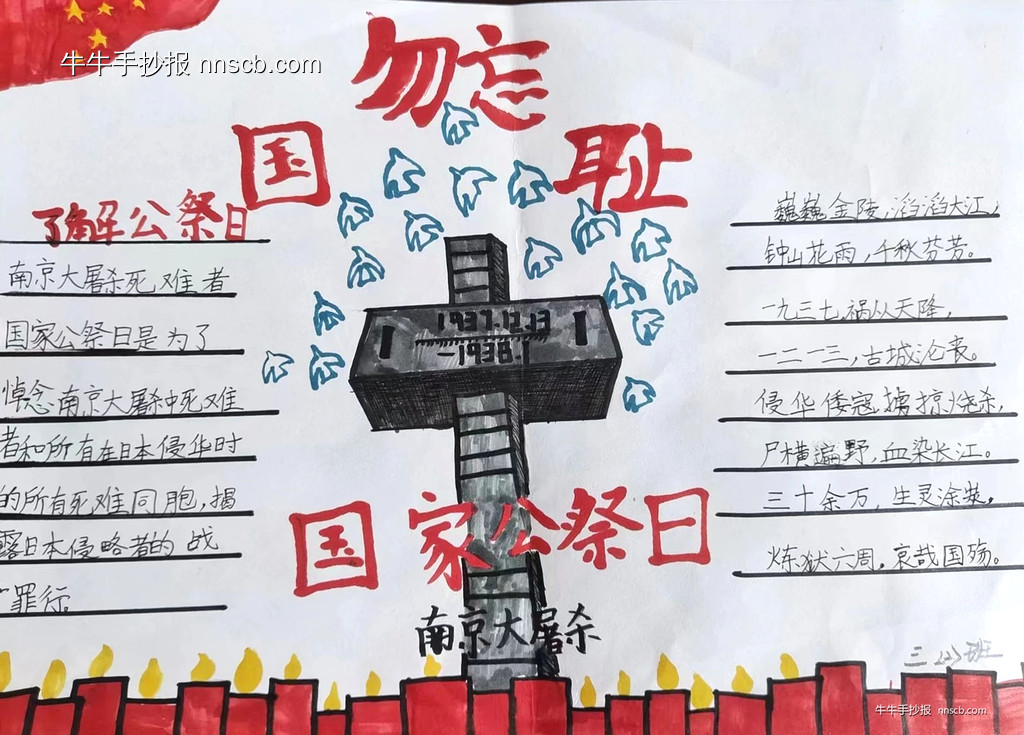 牛牛手抄报 nnscb.com
勿忘
国耻
了解公祭日
南京大屠杀死难者
国家公祭日是为了
悼念南京大屠杀中死难
者和所有在日本侵华时
的所有死难同胞,揭
露日本侵略者的战
罪行
1937.12.13
-1938.1
国家公祭日
南京大屠杀
巍巍金陵,滔滔大江,
钟山花雨,千秋芬芳。
一九三七,祸从天降,
一二一三,古城沦丧。
侵华倭寇,掳掠烧杀,
尸横遍野,血染长江。
三十余万,生灵涂炭,
炼狱六周,哀哉国殇。
三(2)班
牛牛手抄报 nnscb.com